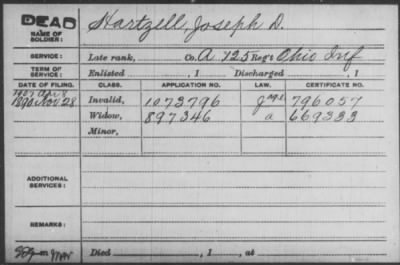 DEAD
NAME OF SOLDIER: Hartzell, Joseph D.
SERVICE: Late rank, Co. A 125 Reg't Ohio Inf
TERM OF SERVICE: Enlisted , 1 Discharged , 1
DATE OF FILING. CLASS. APPLICATION NO. LAW. CERTIFICATE NO.
1890 Nov 28 Invalid, 1073796 796057
1907 Apr 8 Widow, 897346 a 669333
Minor,
ADDITIONAL SERVICES:
REMARKS:
Died , 1 , at